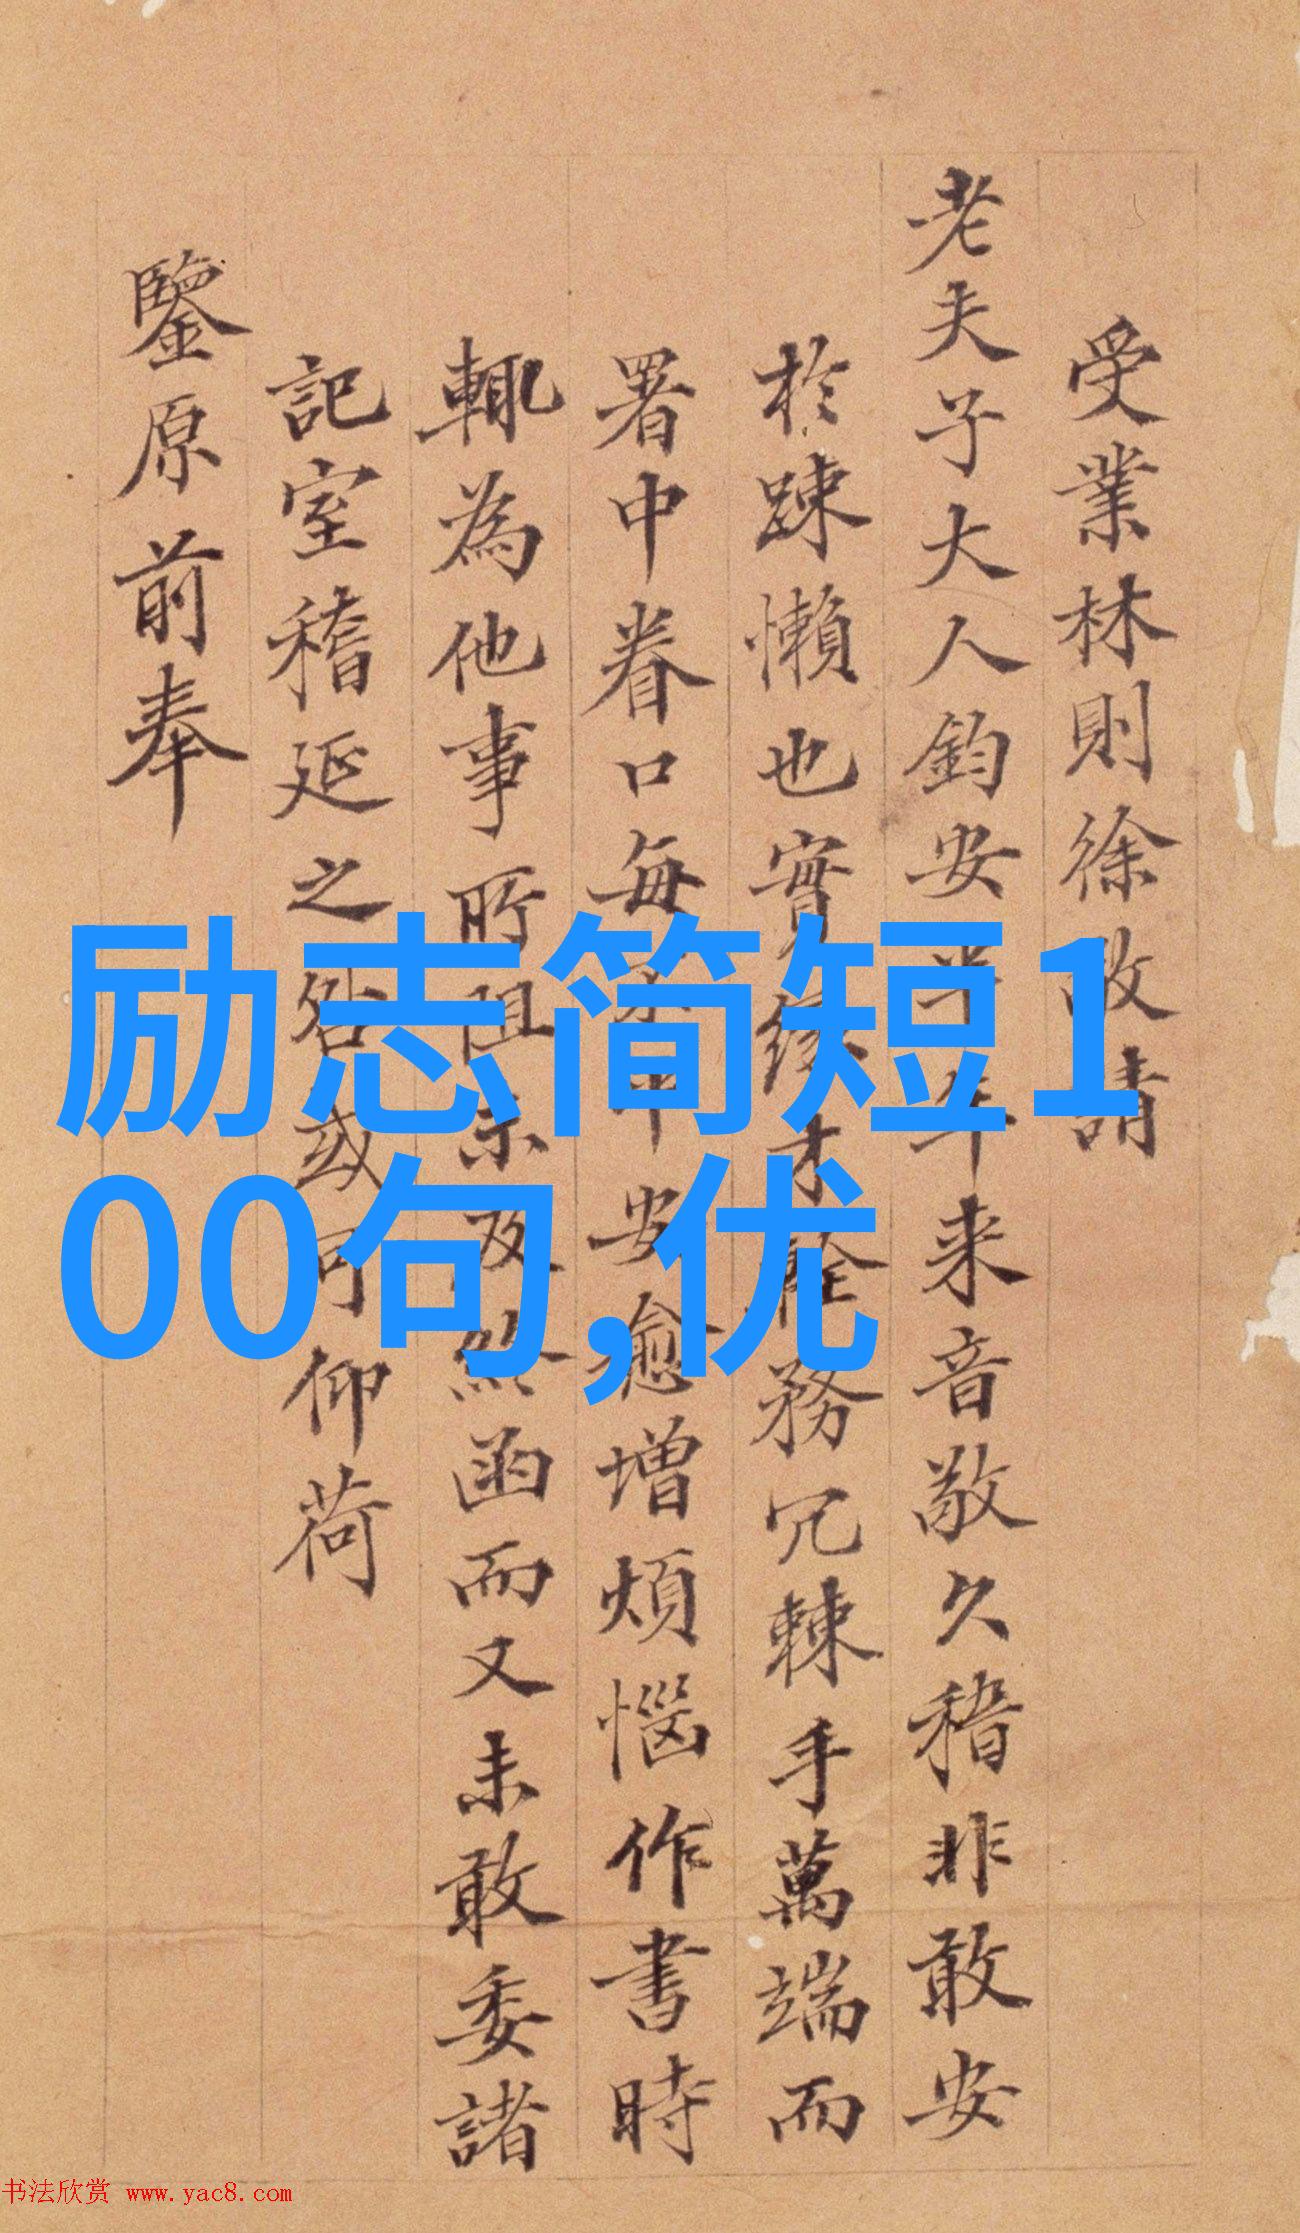 受業林則徐敬請
老夫子大人鈞安半年来音敬久稽非敢安
於踈懶也實緣才輇務冗棘手萬端而
署中眷口每安愈增煩惱作書時
輒為他事所阻未及終函而又未敢委諸
記室稽延之咎或可仰荷
鑒原前奉
励志简短1
00句,优
书法欣赏 www.yac8.com